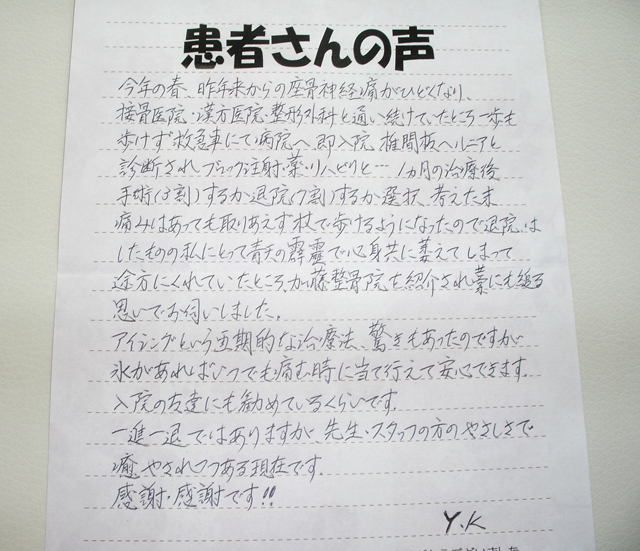 患者さんの声
今年の春、昨年来からの座骨神経痛がひどくなり、
接骨医院・漢方医院・整形外科と通い続けていたところ一歩も
歩けず救急車にて病院へ即入院 椎間板ヘルニアと
診断されブロック注射・薬・リハビリと… 1ヵ月の治療後
手術(3割)するか退院(7割)するか選択、考えた末
痛みはあっても取りあえず杖で歩けるようになったので退院は
したものの私にとって青天の霹靂で心身共に萎えてしまって
途方にくれていたところ、加藤整骨院を紹介され藁にも縋る
思いでお伺いしました。
アイシングという画期的な治療法、驚きもあったのですが
氷があればいつでも痛む時に当て行えて安心できます。
入院の友達にも勧めているくらいです。
一進一退ではありますが、先生・スタッフの方のやさしさで
癒やされつつある現在です。
感謝・感謝です!!
Y.K